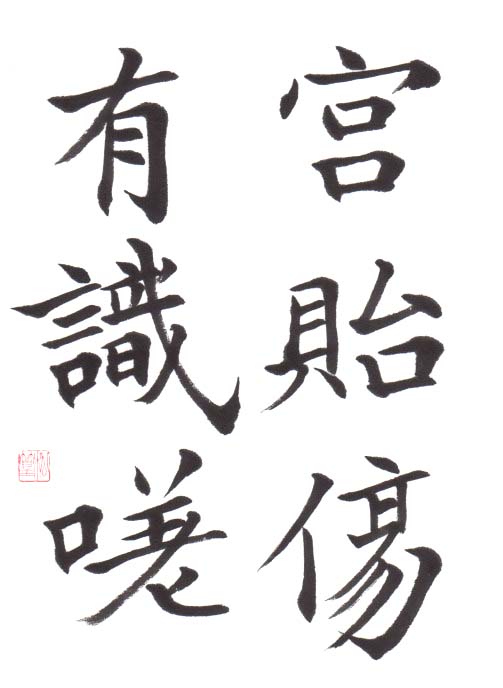 宮貽傷
有識嗟